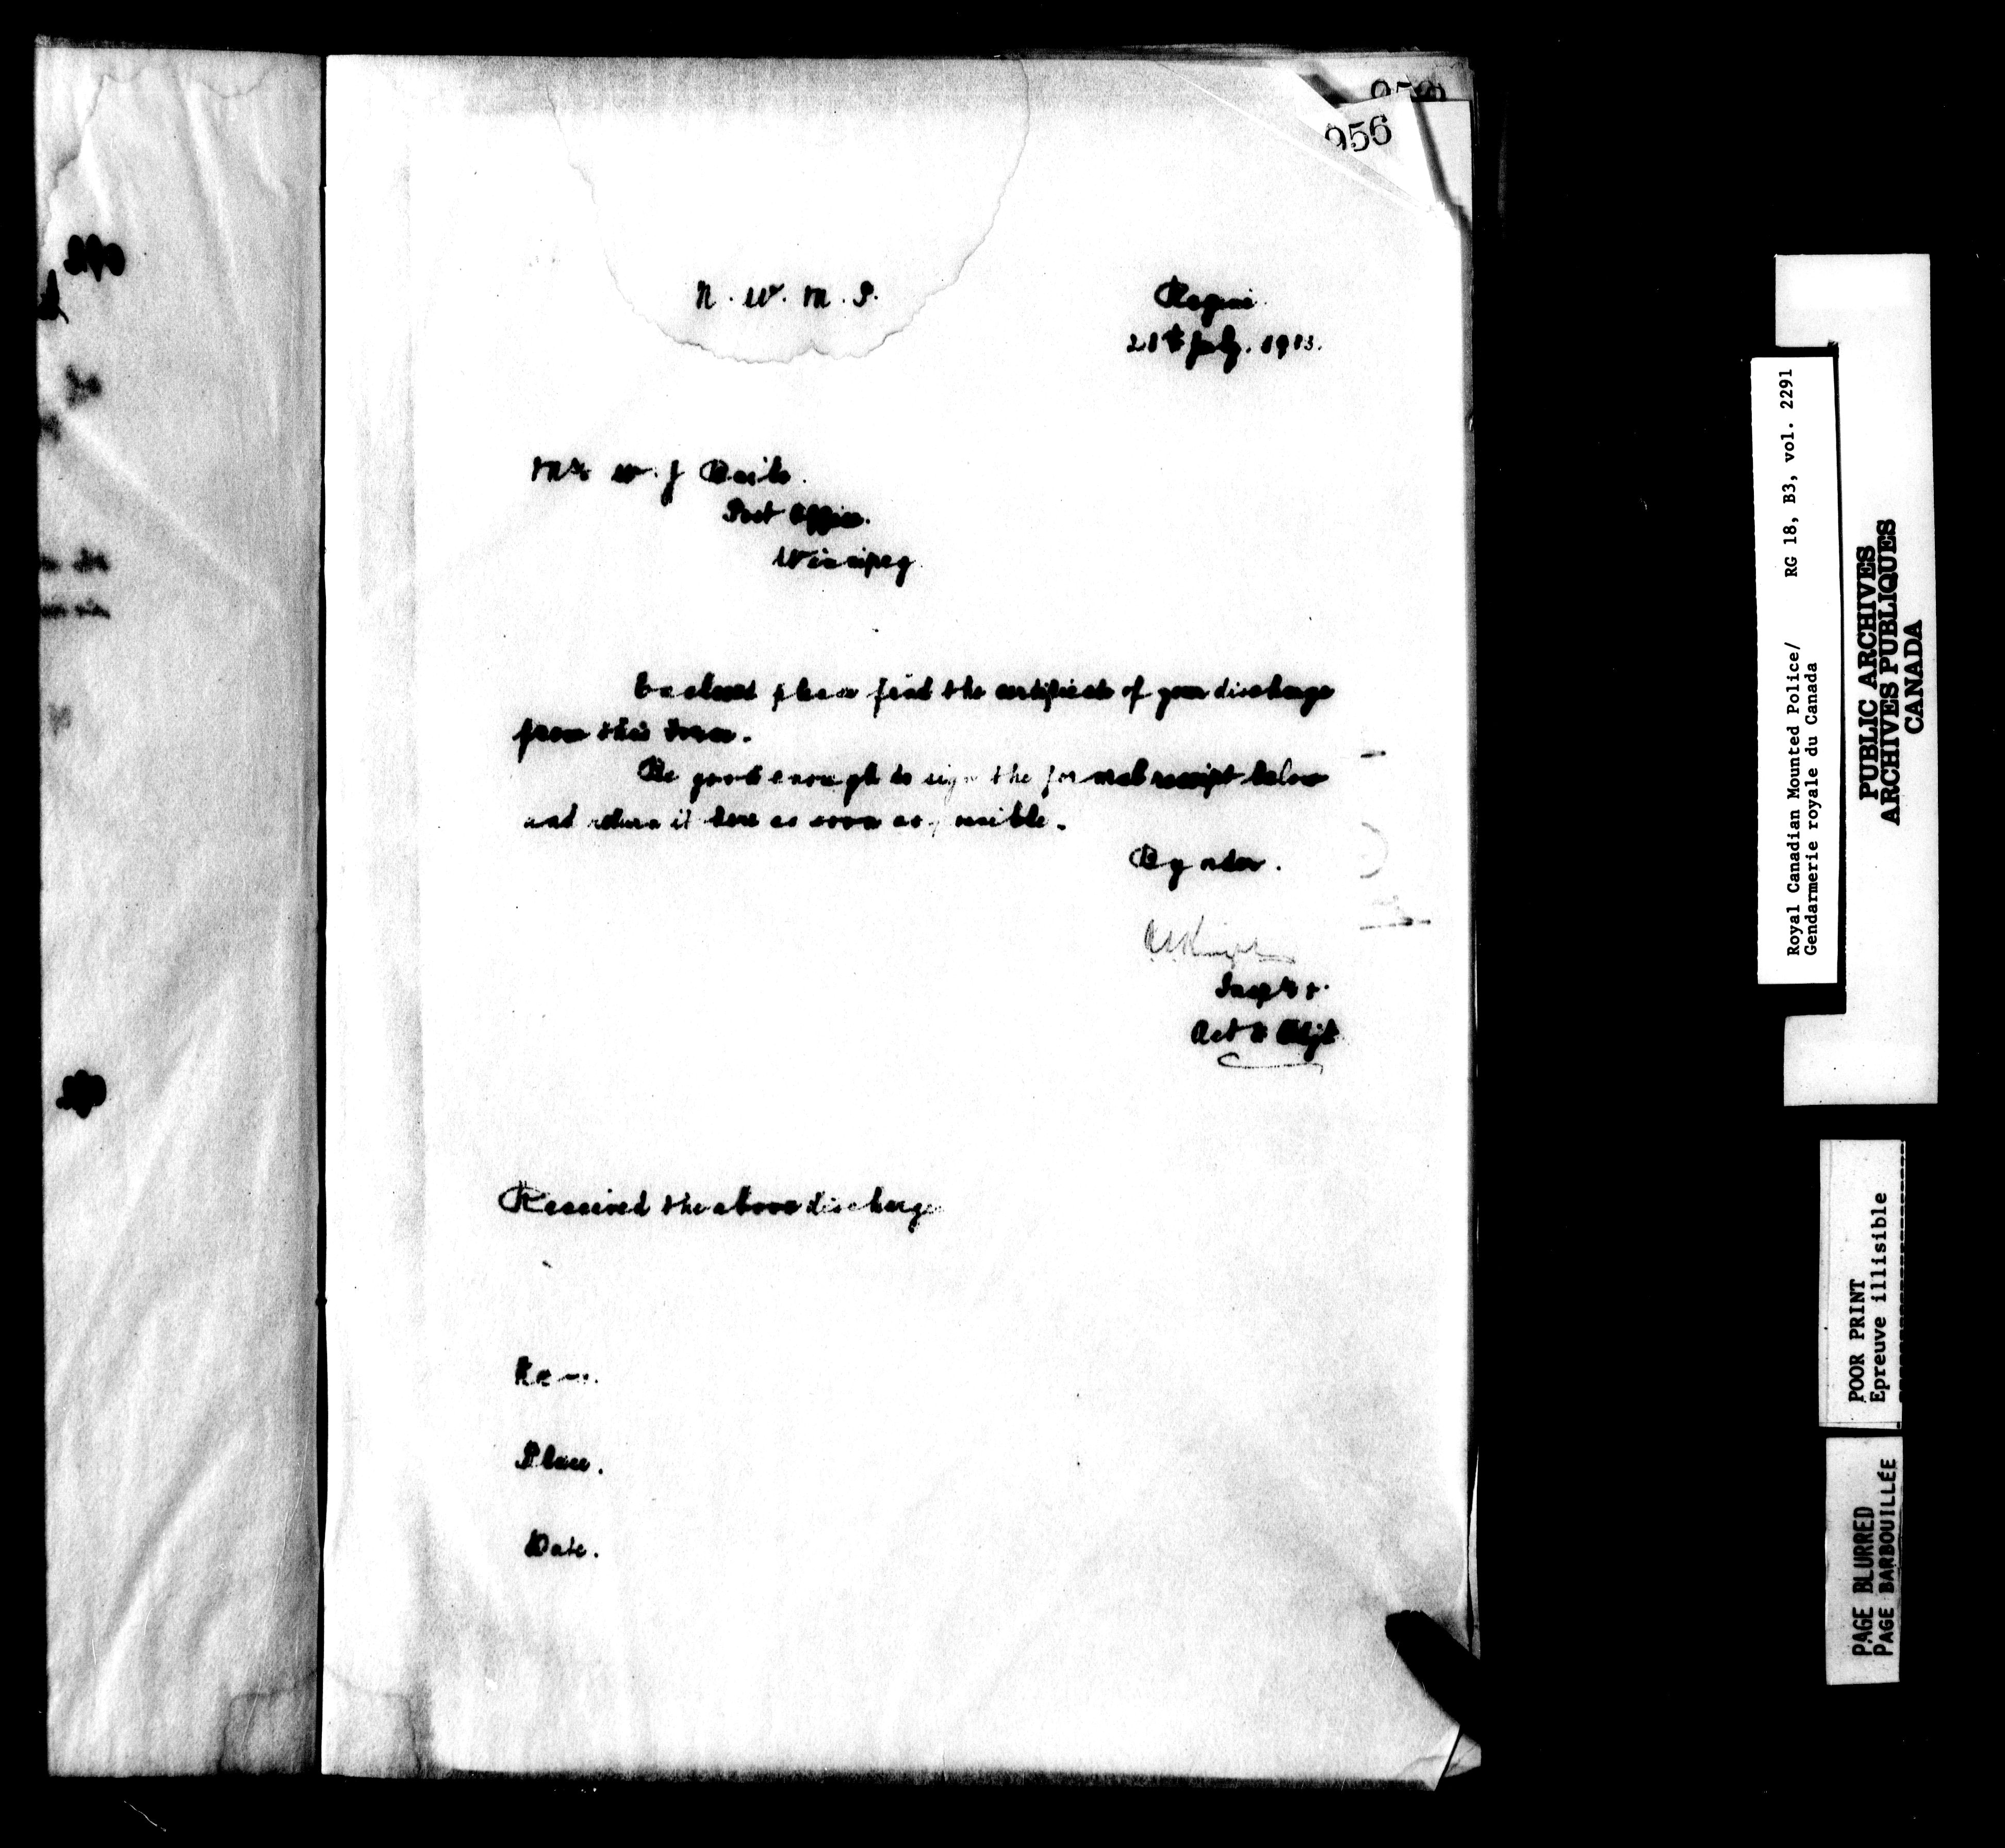 956
N. W. M. P.
Regina
21st July. 1913.
Mr W. J
Post Office.
Winnipeg
Enclosed please find the certificate of your discharge
from this Force.
Be good enough to sign the formal receipt below
and return it here as soon as possible.
By order.
Insptr
Act g Adjt
Received the above discharge
Name.
Place.
Date.
Royal Canadian Mounted Police/ RG 18, B3, vol. 2291
Gendarmerie royale du Canada
PUBLIC ARCHIVES
ARCHIVES PUBLIQUES
CANADA
POOR PRINT
Epreuve illisible
PAGE BLURRED
PAGE BARBOUILLÉE